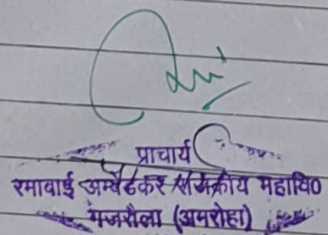 प्राचार्य
रमाबाई अम्बेडकर राजकीय महावि०
गजरौला (अमरोहा)